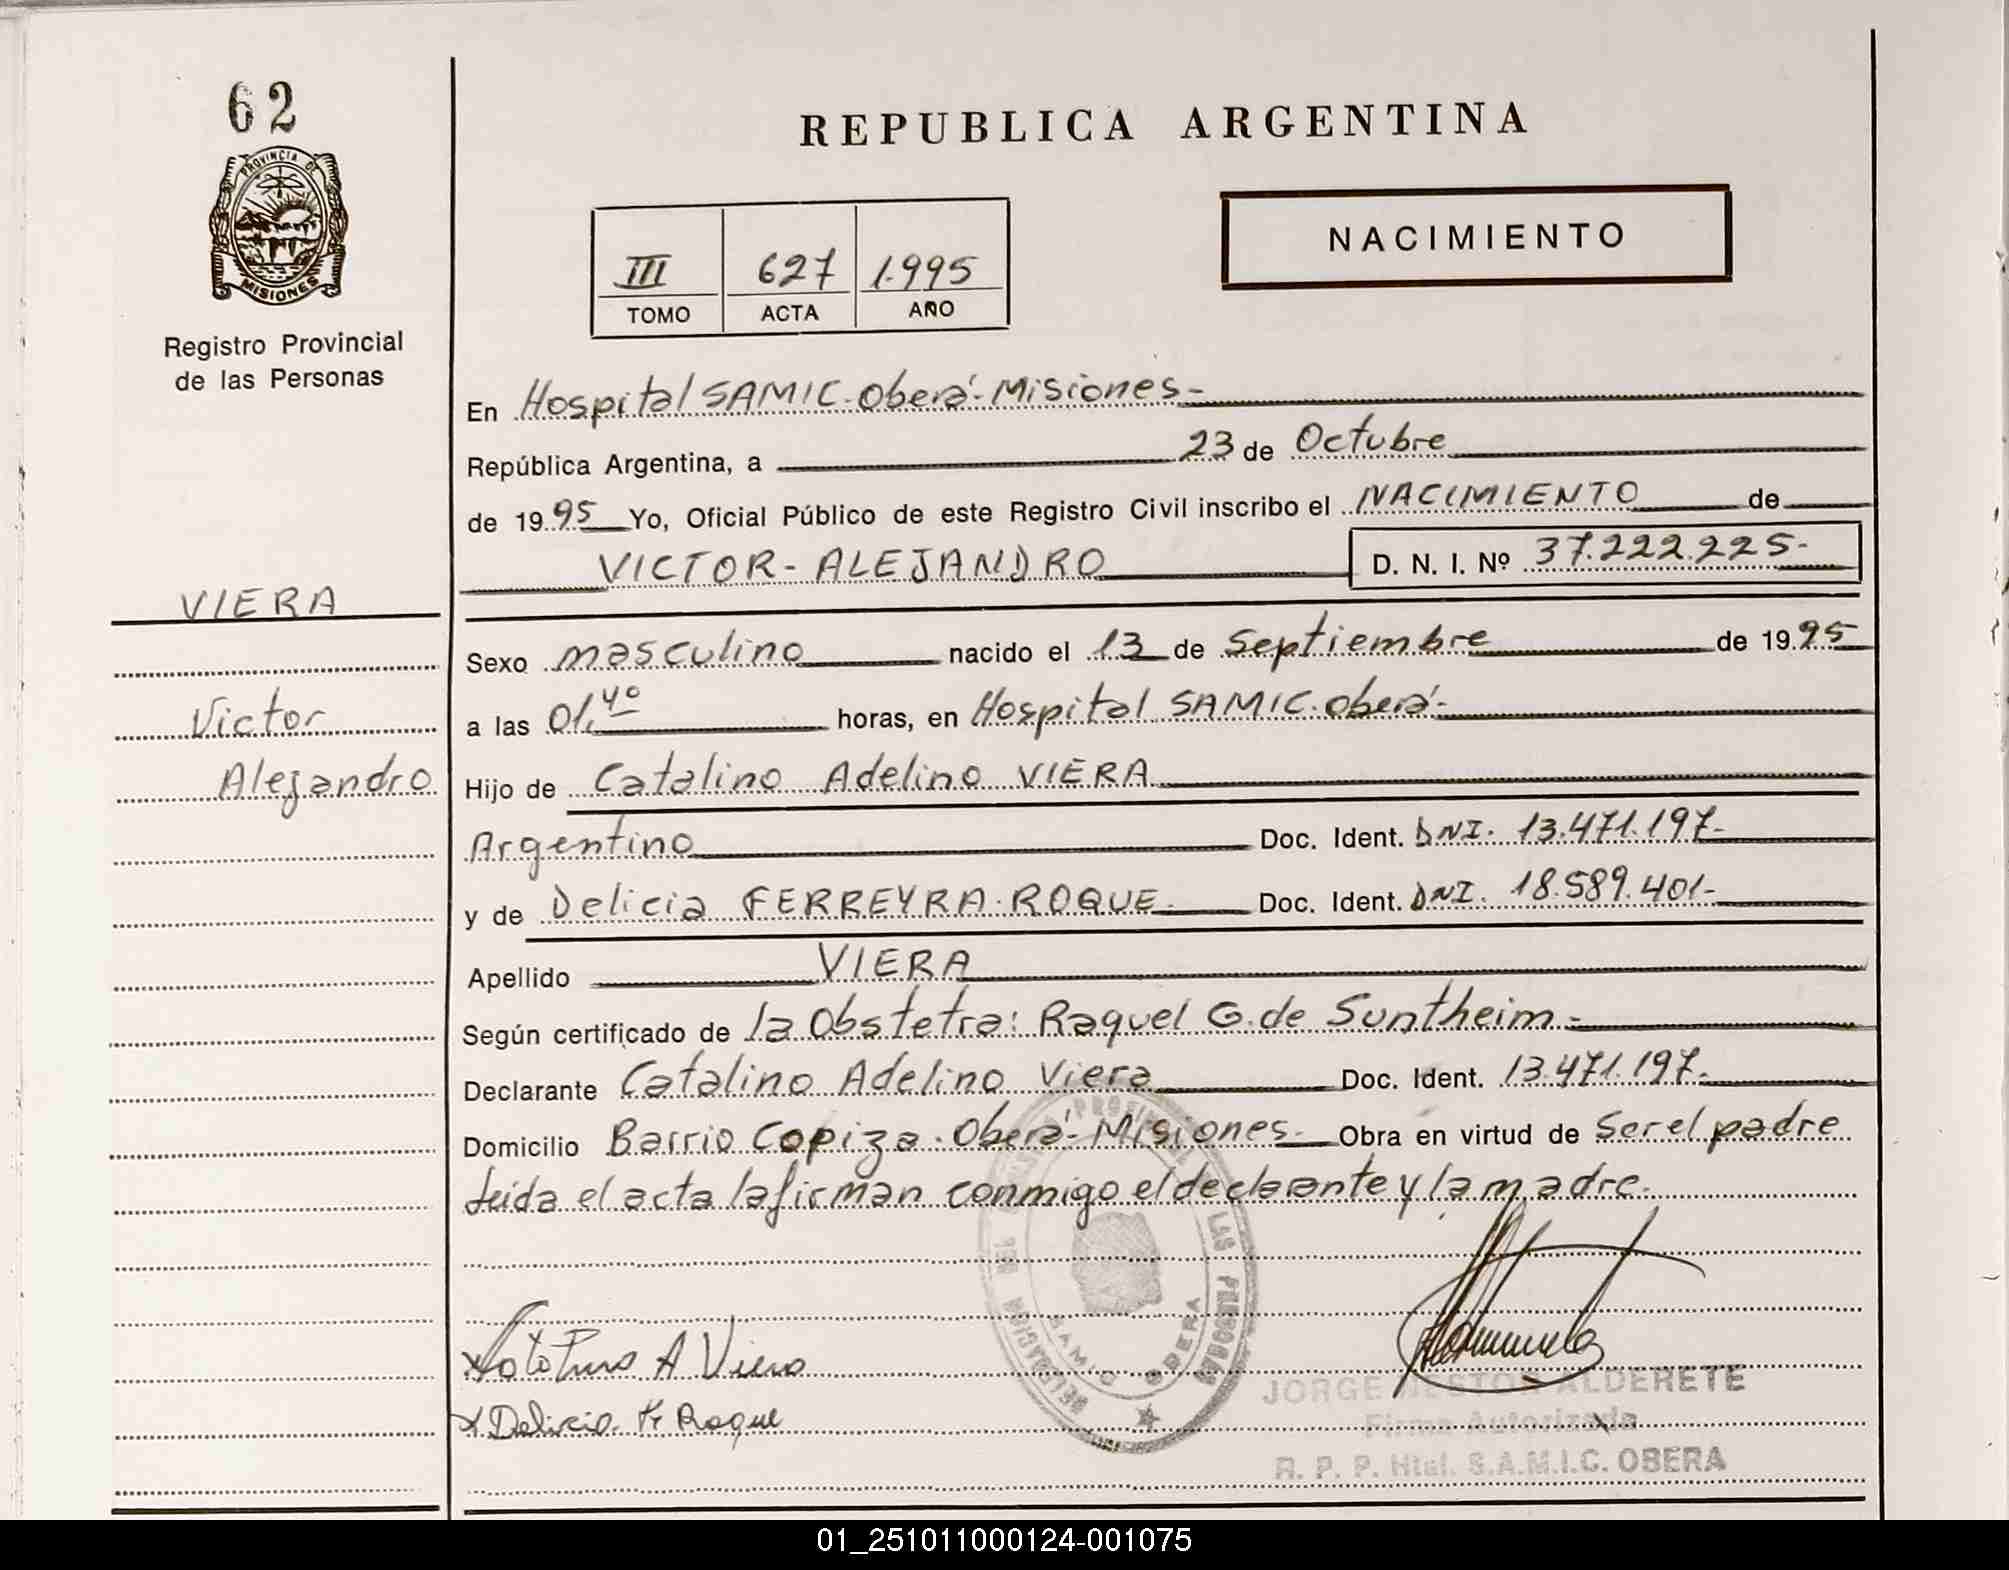 62
PROVINCIA DE
MISIONES
Registro Provincial
de las Personas
VIERA
Victor
Alejandro
REPUBLICA ARGENTINA
III 627 1.995
TOMO ACTA AÑO
NACIMIENTO
En Hospital SAMIC-Oberá-Misiones-
República Argentina, a 23 de Octubre
de 1995 Yo, Oficial Público de este Registro Civil inscribo el NACIMIENTO de
VICTOR-ALEJANDRO D. N. I. Nº 37.222.225-
Sexo masculino nacido el 13 de Septiembre de 1995
a las 01,40 horas, en Hospital SAMIC-Oberá-
Hijo de Catalino Adelino VIERA
Argentino Doc. Ident. DNI. 13.471.197-
y de Delicia FERREYRA-ROQUE Doc. Ident. DNI. 18.589.401-
Apellido VIERA
Según certificado de la Obstetra: Raquel G. de Suntheim-
Declarante Catalino Adelino Viera Doc. Ident. 13.471.197-
Domicilio Barrio Copiza-Oberá-Misiones- Obra en virtud de Ser el padre
Leida el acta la firman conmigo el declarante y la madre.
DELEGACION DEL REGISTRO PROVINCIAL DE LAS PERSONAS
SAMIC OBERA
A Viera
x Delicia F. Roque
JORGE NESTOR ALDERETE
Firma Autorizada
R. P. P. Htal. S.A.M.I.C. OBERA
01_251011000124-001075